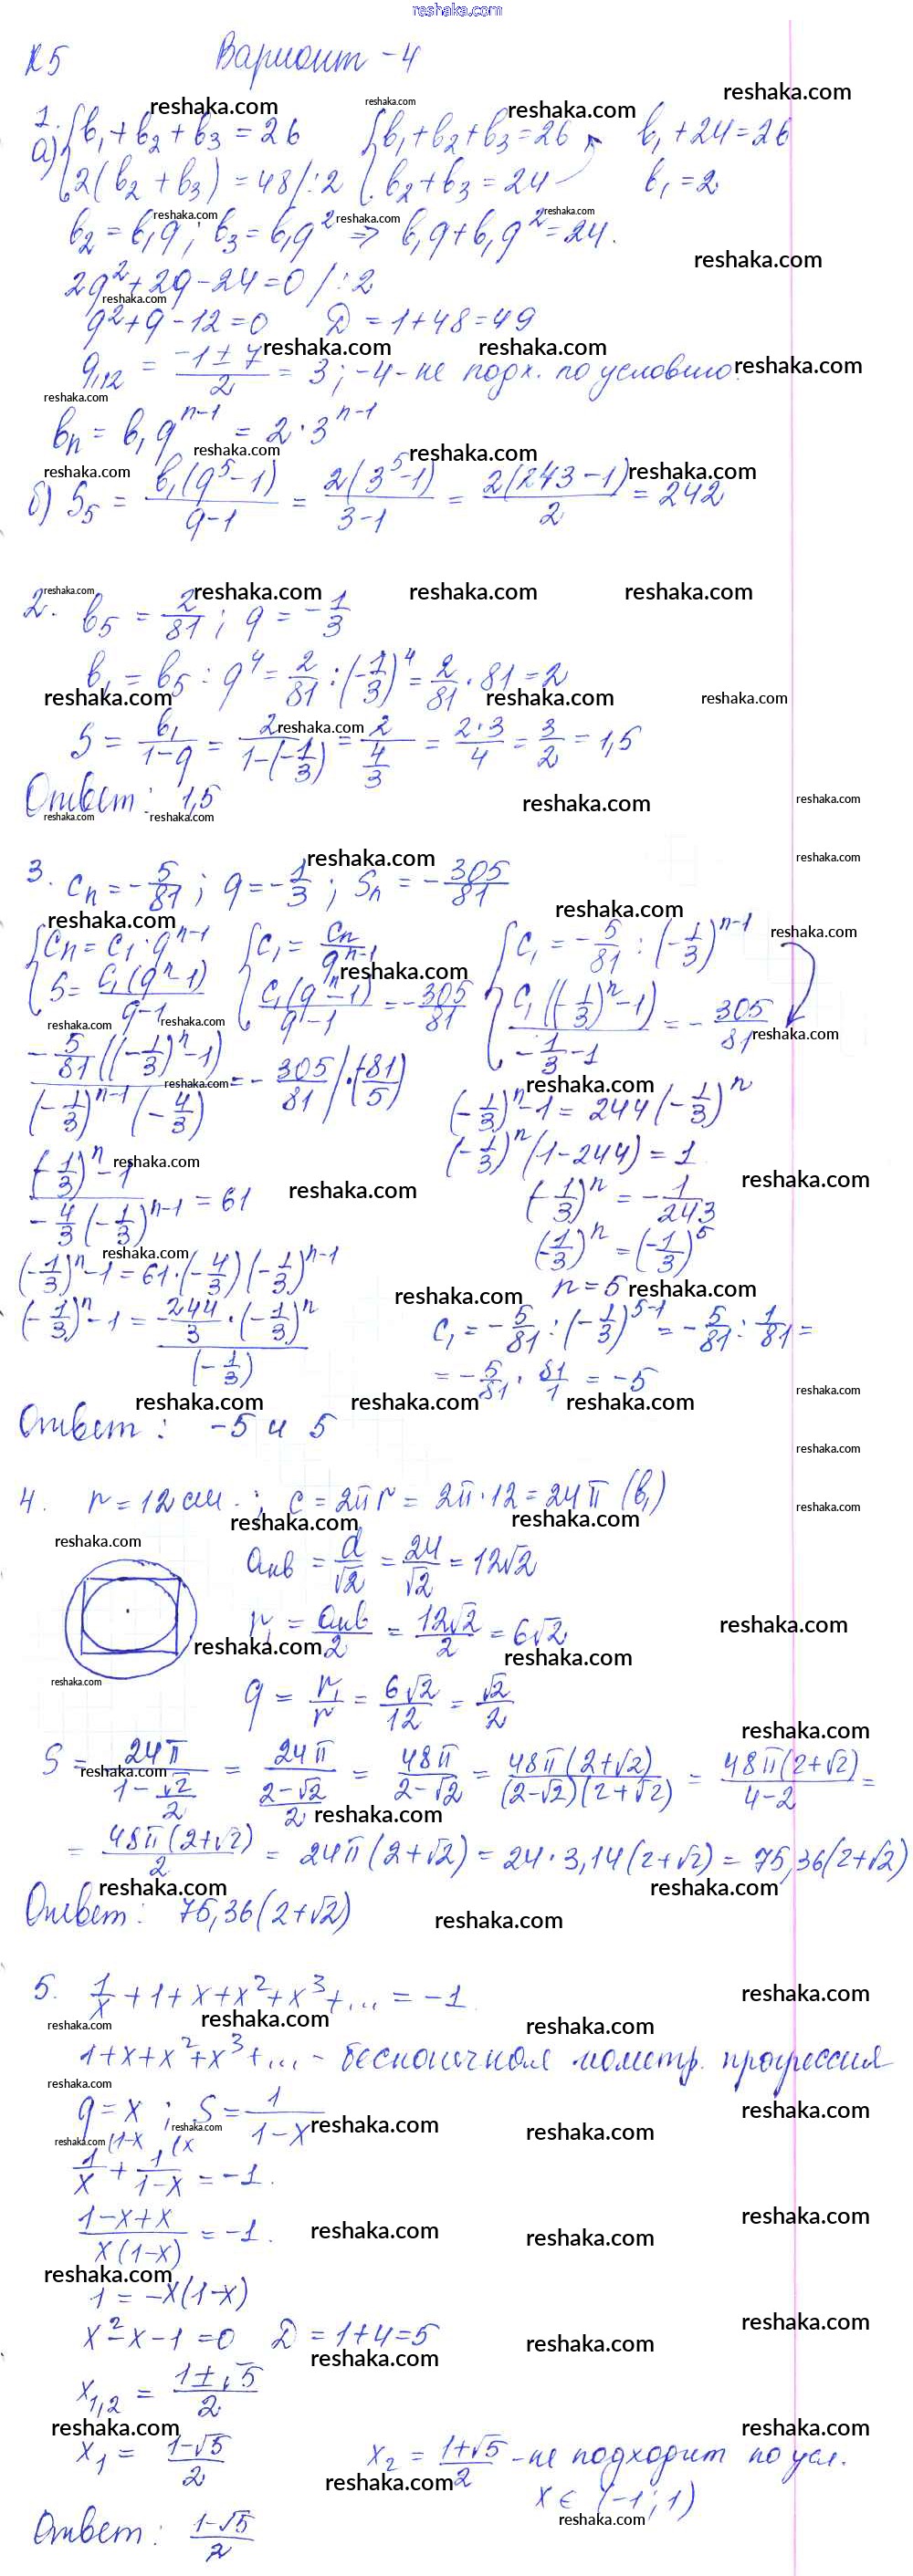 reshaka.com
К5 Вариант -4
1. а) { b₁ + b₂ + b₃ = 26 { b₁ + b₂ + b₃ = 26 b₁ + 24 = 26
{ 2(b₂ + b₃) = 48 /:2 { b₂ + b₃ = 24 b₁ = 2
b₂ = b₁q ; b₃ = b₁q² ⇒ b₁q + b₁q² = 24.
2q² + 2q - 24 = 0 /:2
q² + q - 12 = 0 Д = 1 + 48 = 49
q₁,₂ = (-1 ± 7)/2 = 3 ; -4 - не подх. по условию.
bₙ = b₁qⁿ⁻¹ = 2·3ⁿ⁻¹
б) S₅ = b₁(q⁵ - 1)/(q - 1) = 2(3⁵ - 1)/(3 - 1) = 2(243 - 1)/2 = 242
2. b₅ = 2/81 ; q = -1/3
b₁ = b₅ : q⁴ = 2/81 : (-1/3)⁴ = 2/81 · 81 = 2
S = b₁/(1 - q) = 2/(1 - (-1/3)) = 2/(4/3) = 2·3/4 = 3/2 = 1,5
Ответ: 1,5
3. cₙ = -5/81 ; q = -1/3 ; Sₙ = -305/81
{ cₙ = c₁·qⁿ⁻¹ { c₁ = cₙ/qⁿ⁻¹ { c₁ = -5/81 : (-1/3)ⁿ⁻¹
{ S = c₁(qⁿ - 1)/(q - 1) { c₁(qⁿ - 1)/(q - 1) = -305/81 { c₁((-1/3)ⁿ - 1)/(-1/3 - 1) = -305/81
-5/81((-1/3)ⁿ - 1)/((-1/3)ⁿ⁻¹(-4/3)) = -305/81 /·(-81/5)
((-1/3)ⁿ - 1)/(-4/3(-1/3)ⁿ⁻¹) = 61
(-1/3)ⁿ - 1 = 61·(-4/3)(-1/3)ⁿ⁻¹
(-1/3)ⁿ - 1 = (-244/3·(-1/3)ⁿ)/(-1/3)
(-1/3)ⁿ - 1 = 244(-1/3)ⁿ
(-1/3)ⁿ(1 - 244) = 1
(-1/3)ⁿ = -1/243
(-1/3)ⁿ = (-1/3)⁵
n = 5
c₁ = -5/81 : (-1/3)⁵⁻¹ = -5/81 : 1/81 =
= -5/81 · 81/1 = -5
Ответ: -5 и 5
4. r = 12 см. ; c = 2πr = 2π·12 = 24π (b₁)
aкв = d/√2 = 24/√2 = 12√2
r₁ = aкв/2 = 12√2/2 = 6√2
q = r₁/r = 6√2/12 = √2/2
S = 24π/(1 - √2/2) = 24π/((2-√2)/2) = 48π/(2-√2) = 48π(2+√2)/((2-√2)(2+√2)) = 48π(2+√2)/(4-2) =
= 48π(2+√2)/2 = 24π(2+√2) = 24·3,14(2+√2) = 75,36(2+√2)
Ответ: 75,36(2+√2)
5. 1/x + 1 + x + x² + x³ + ... = -1.
1 + x + x² + x³ + ... - бесконечная геометр. прогрессия
q = x ; S = 1/(1-x)
1/x (1-x + 1/(1-x) (x = -1.
(1-x+x)/(x(1-x)) = -1.
1 = -x(1-x)
x² - x - 1 = 0 Д = 1 + 4 = 5
x₁,₂ = (1±√5)/2
x₁ = (1-√5)/2 x₂ = (1+√5)/2 - не подходит по усл.
x ∈ (-1 ; 1)
Ответ: (1-√5)/2